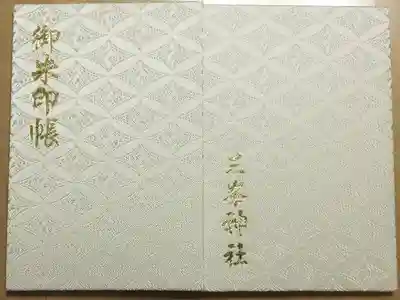 御朱印帳
三峯神社